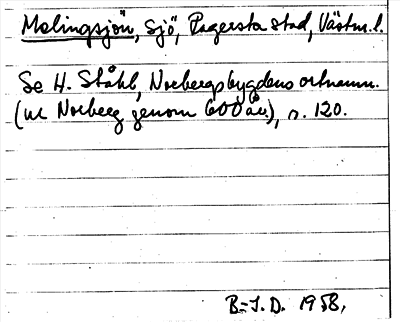 Malingsjön, Sjö, Fagersta stad, Västm. l.
Se H. Ståhl, Norbergsbygdens ortnamn.
(ur Norberg genom 600 år), s. 120.
B-I.D. 1958.